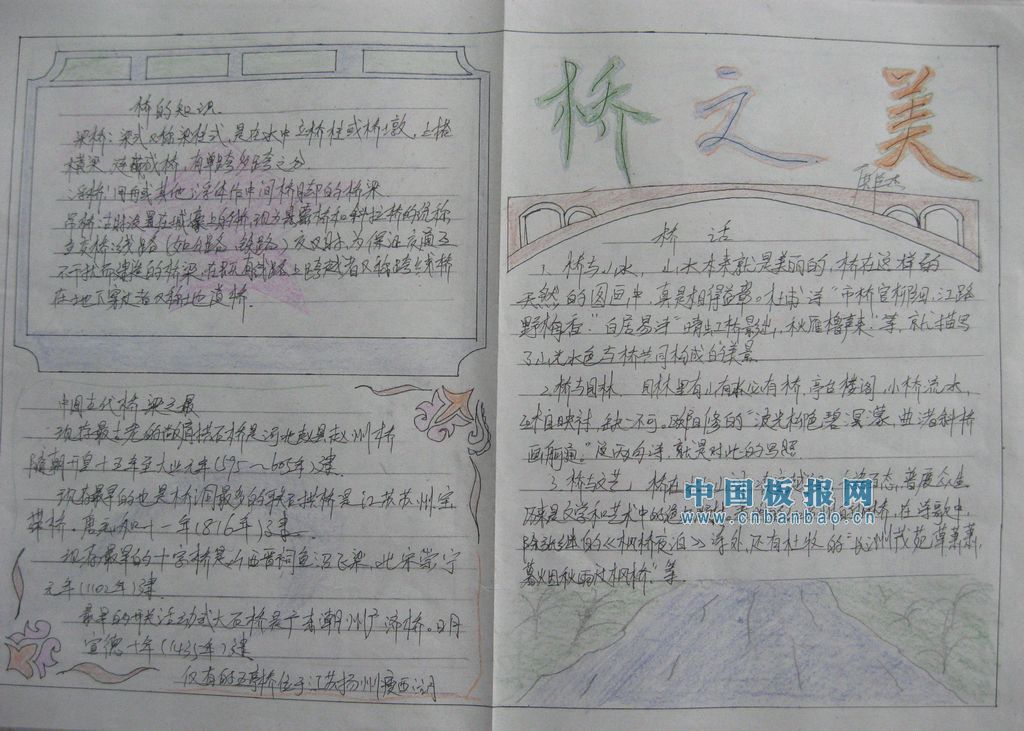 桥的知识
梁桥：梁式又称梁柱式，是在水中立桥柱或桥墩，上搭
横梁，连而成桥，有单跨多跨之分
浮桥：用舟或其他浮体作中间桥脚的桥梁
吊桥：古时设置在城壕上的桥，现为悬索桥和斜拉桥的统称
立交桥：线路（如公路、铁路）交叉时，为保证交通互
不干扰而建造的桥梁，在既有线路上跨越者又称跨线桥
在地下穿过者又称地道桥。
中国古代桥梁之最
现存最古老的敞肩拱石桥是河北赵县赵州桥
隋朝开皇十五年至大业元年（595～605年）建
现存最早的也是桥洞最多的联石拱桥是江苏苏州宝
带桥，唐元和十一年（816年）建
现存最早的十字桥是山西晋祠鱼沼飞梁，北宋崇宁
元年（1102年）建
最早的开关活动式大石桥是广东潮州广济桥。明
宣德十年（1435年）建
仅有的五亭桥位于江苏扬州瘦西湖
桥之美
桥话
1、桥与山水，山水本来就是美丽的，桥在这样的
天然的图画中，真是相得益彰。杜甫诗“市桥官柳细，江路
野梅香”，白居易诗“晴虹桥影出，秋雁橹声来”等，就描写
了山光水色与桥共同构成的美景
2、桥与园林，园林里有山有水必有桥，亭台楼阁，小桥流水，
互相映衬，缺一不可，欧阳修的“波光柳色碧溟濛，曲渚斜桥
画舸通”这两句诗，就是对此的写照
3、桥与文艺，桥在 普度众生
历来是文学和艺术中的 桥，在诗歌中，
除张继的《枫桥夜泊》诗外，还有杜牧的“长洲茂苑草萧萧，
暮烟秋雨过枫桥”等。
中国板报网
www.cnbanbao.cn